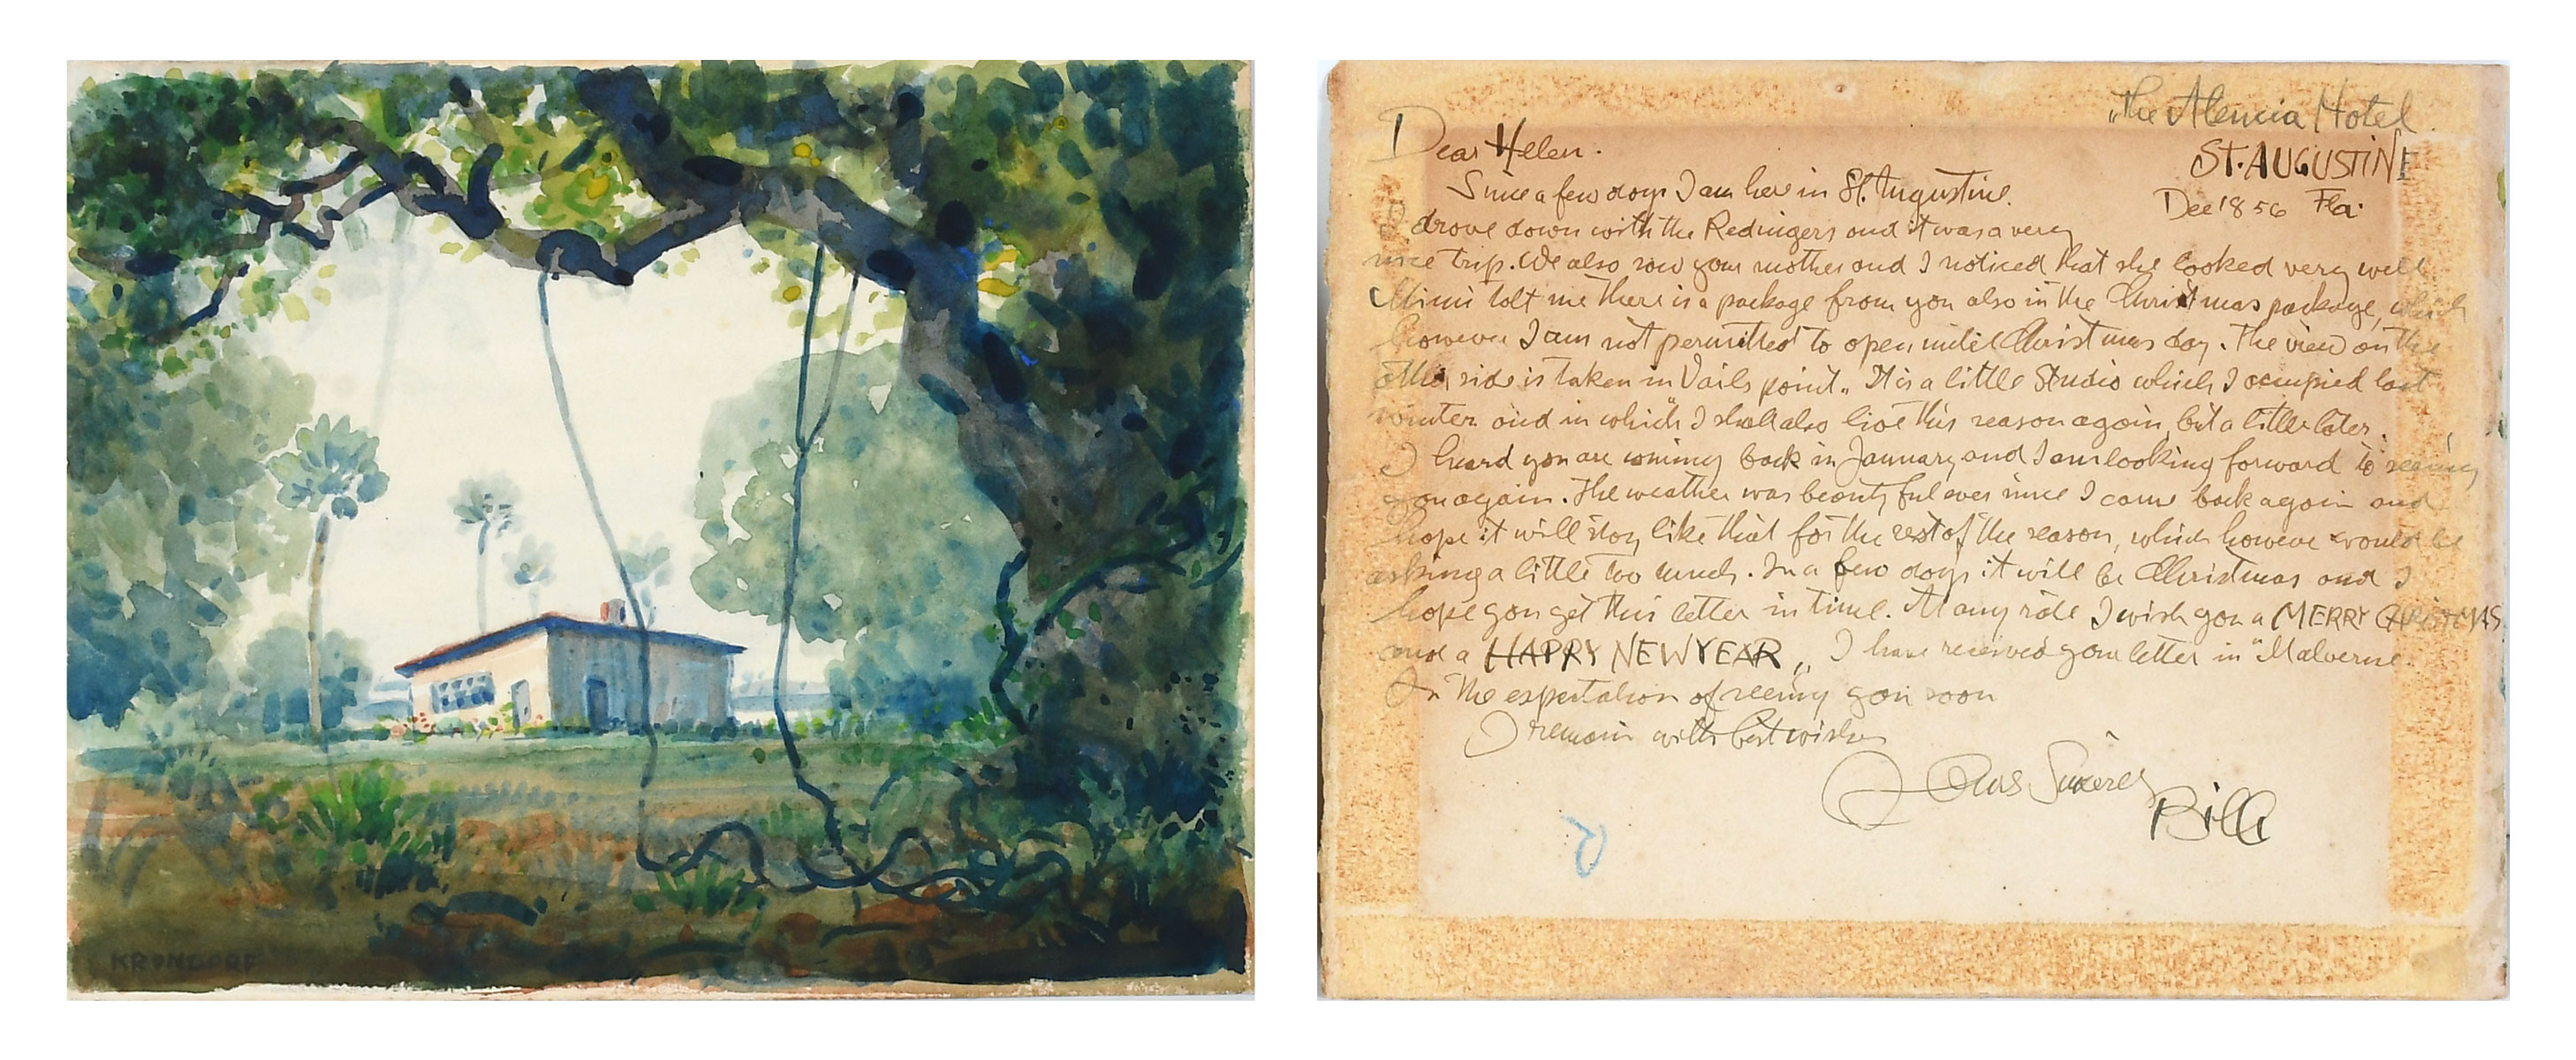 KRONDORF
"The Alencia Hotel
ST. AUGUSTINE
Dec 18 56 Fla.
Dear Helen.
Since a few days I am here in St. Augustine.
I drove down with the Redingers and it was a very
nice trip. We also saw your mother and I noticed that she looked very well
Mimi tolt me there is a package from you also in the Christmas package, which
however I am not permitted to open until Christmas day. The view on the
other side is taken in Vails point„ It is a little Studio which I occupied last
winter and in which I shall also live this season again, but a little later.
I heard you are coming back in January and I am looking forward to seeing
you again. The weather was beautyful ever since I came back again and
hope it will stay like that for the rest of the season, which howeve would be
asking a little too much. In a few days it will be Christmas and I
hope you get this letter in time. At any rate I wish you a MERRY CHRISTMAS
and a HAPPY NEW YEAR„ I have received your letter in "Malverne.
In the expectation of seeing you soon
I remain with best wishes
Yours Sincerely
Bill